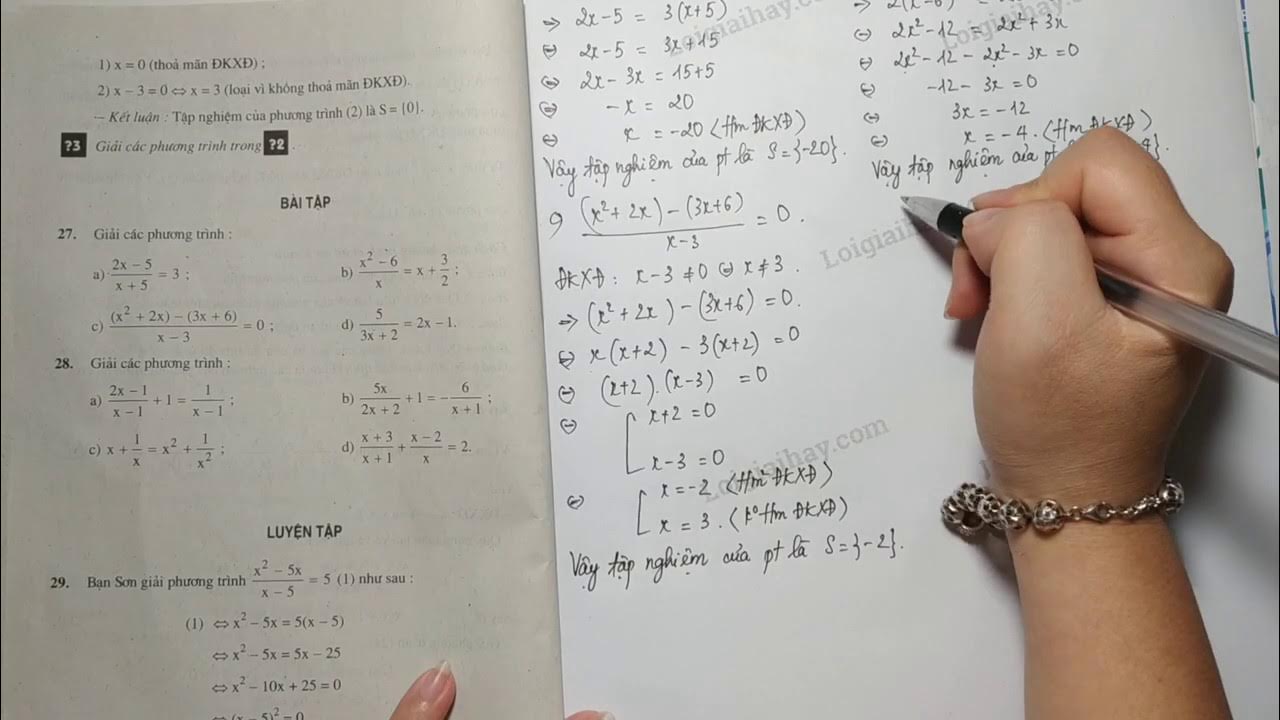 1) x = 0 (thoả mãn ĐKXĐ) ;
2) x – 3 = 0 ⇔ x = 3 (loại vì không thoả mãn ĐKXĐ).
— Kết luận : Tập nghiệm của phương trình (2) là S = {0}.
?3 Giải các phương trình trong ?2 .
BÀI TẬP
27. Giải các phương trình :
a) (2x – 5)/(x + 5) = 3 ;
b) (x² – 6)/x = x + 3/2 ;
c) ((x² + 2x) – (3x + 6))/(x – 3) = 0 ;
d) 5/(3x + 2) = 2x – 1.
28. Giải các phương trình :
a) (2x – 1)/(x – 1) + 1 = 1/(x – 1) ;
b) 5x/(2x + 2) + 1 = – 6/(x + 1) ;
c) x + 1/x = x² + 1/x² ;
d) (x + 3)/(x + 1) + (x – 2)/x = 2.
LUYỆN TẬP
29. Bạn Sơn giải phương trình (x² – 5x)/(x – 5) = 5 (1) như sau :
(1) ⇔ x² – 5x = 5(x – 5)
⇔ x² – 5x = 5x – 25
⇔ x² – 10x + 25 = 0
⇔ (x – 5)² = 0
⇒ 2x – 5 = 3(x+5)
⇔ 2x – 5 = 3x + 15
⇔ 2x – 3x = 15 + 5
⇔ – x = 20
⇔ x = –20 (tm ĐKXĐ)
Vậy tập nghiệm của pt là S = {–20}.
((x² + 2x) – (3x + 6))/(x – 3) = 0 .
ĐKXĐ : x – 3 ≠ 0 ⇔ x ≠ 3 .
⇒ (x² + 2x) – (3x + 6) = 0.
⇔ x(x+2) – 3(x+2) = 0
⇔ (x+2).(x–3) = 0
⇔ [ x + 2 = 0
x – 3 = 0
⇔ [ x = –2 (tm ĐKXĐ)
x = 3 . (k° tm ĐKXĐ)
Vậy tập nghiệm của pt là S = {–2}.
⇔ 2x² – 12 = 2x² + 3x
⇔ 2x² – 12 – 2x² – 3x = 0
⇔ –12 – 3x = 0
⇔ 3x = –12
⇔ x = –4 . (tm ĐKXĐ)
Vậy tập nghiệm của pt
Loigiaihay.com
Loigiaihay.com
Loigiaihay.com